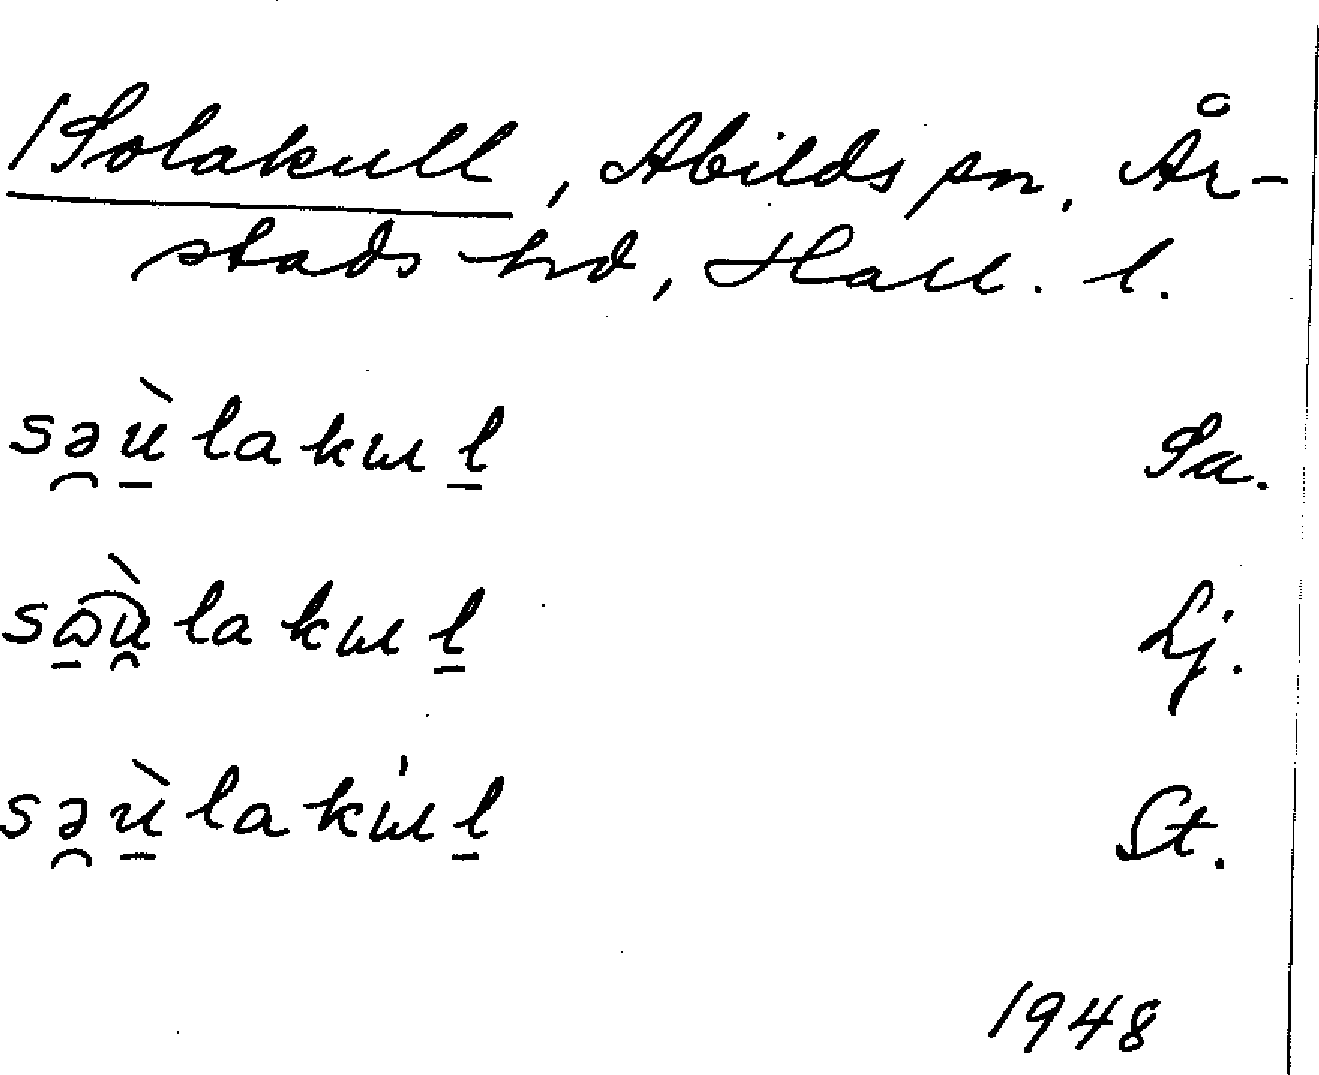 1 Solakull, Abilds sn. År-
stads hd, Hall. l.
sə̯ù̱lakɯḻ Sa.
sɑ̱ù̯lakɯḻ Lj.
sə̯ù̱lakɯ̍ḻ St.
1948